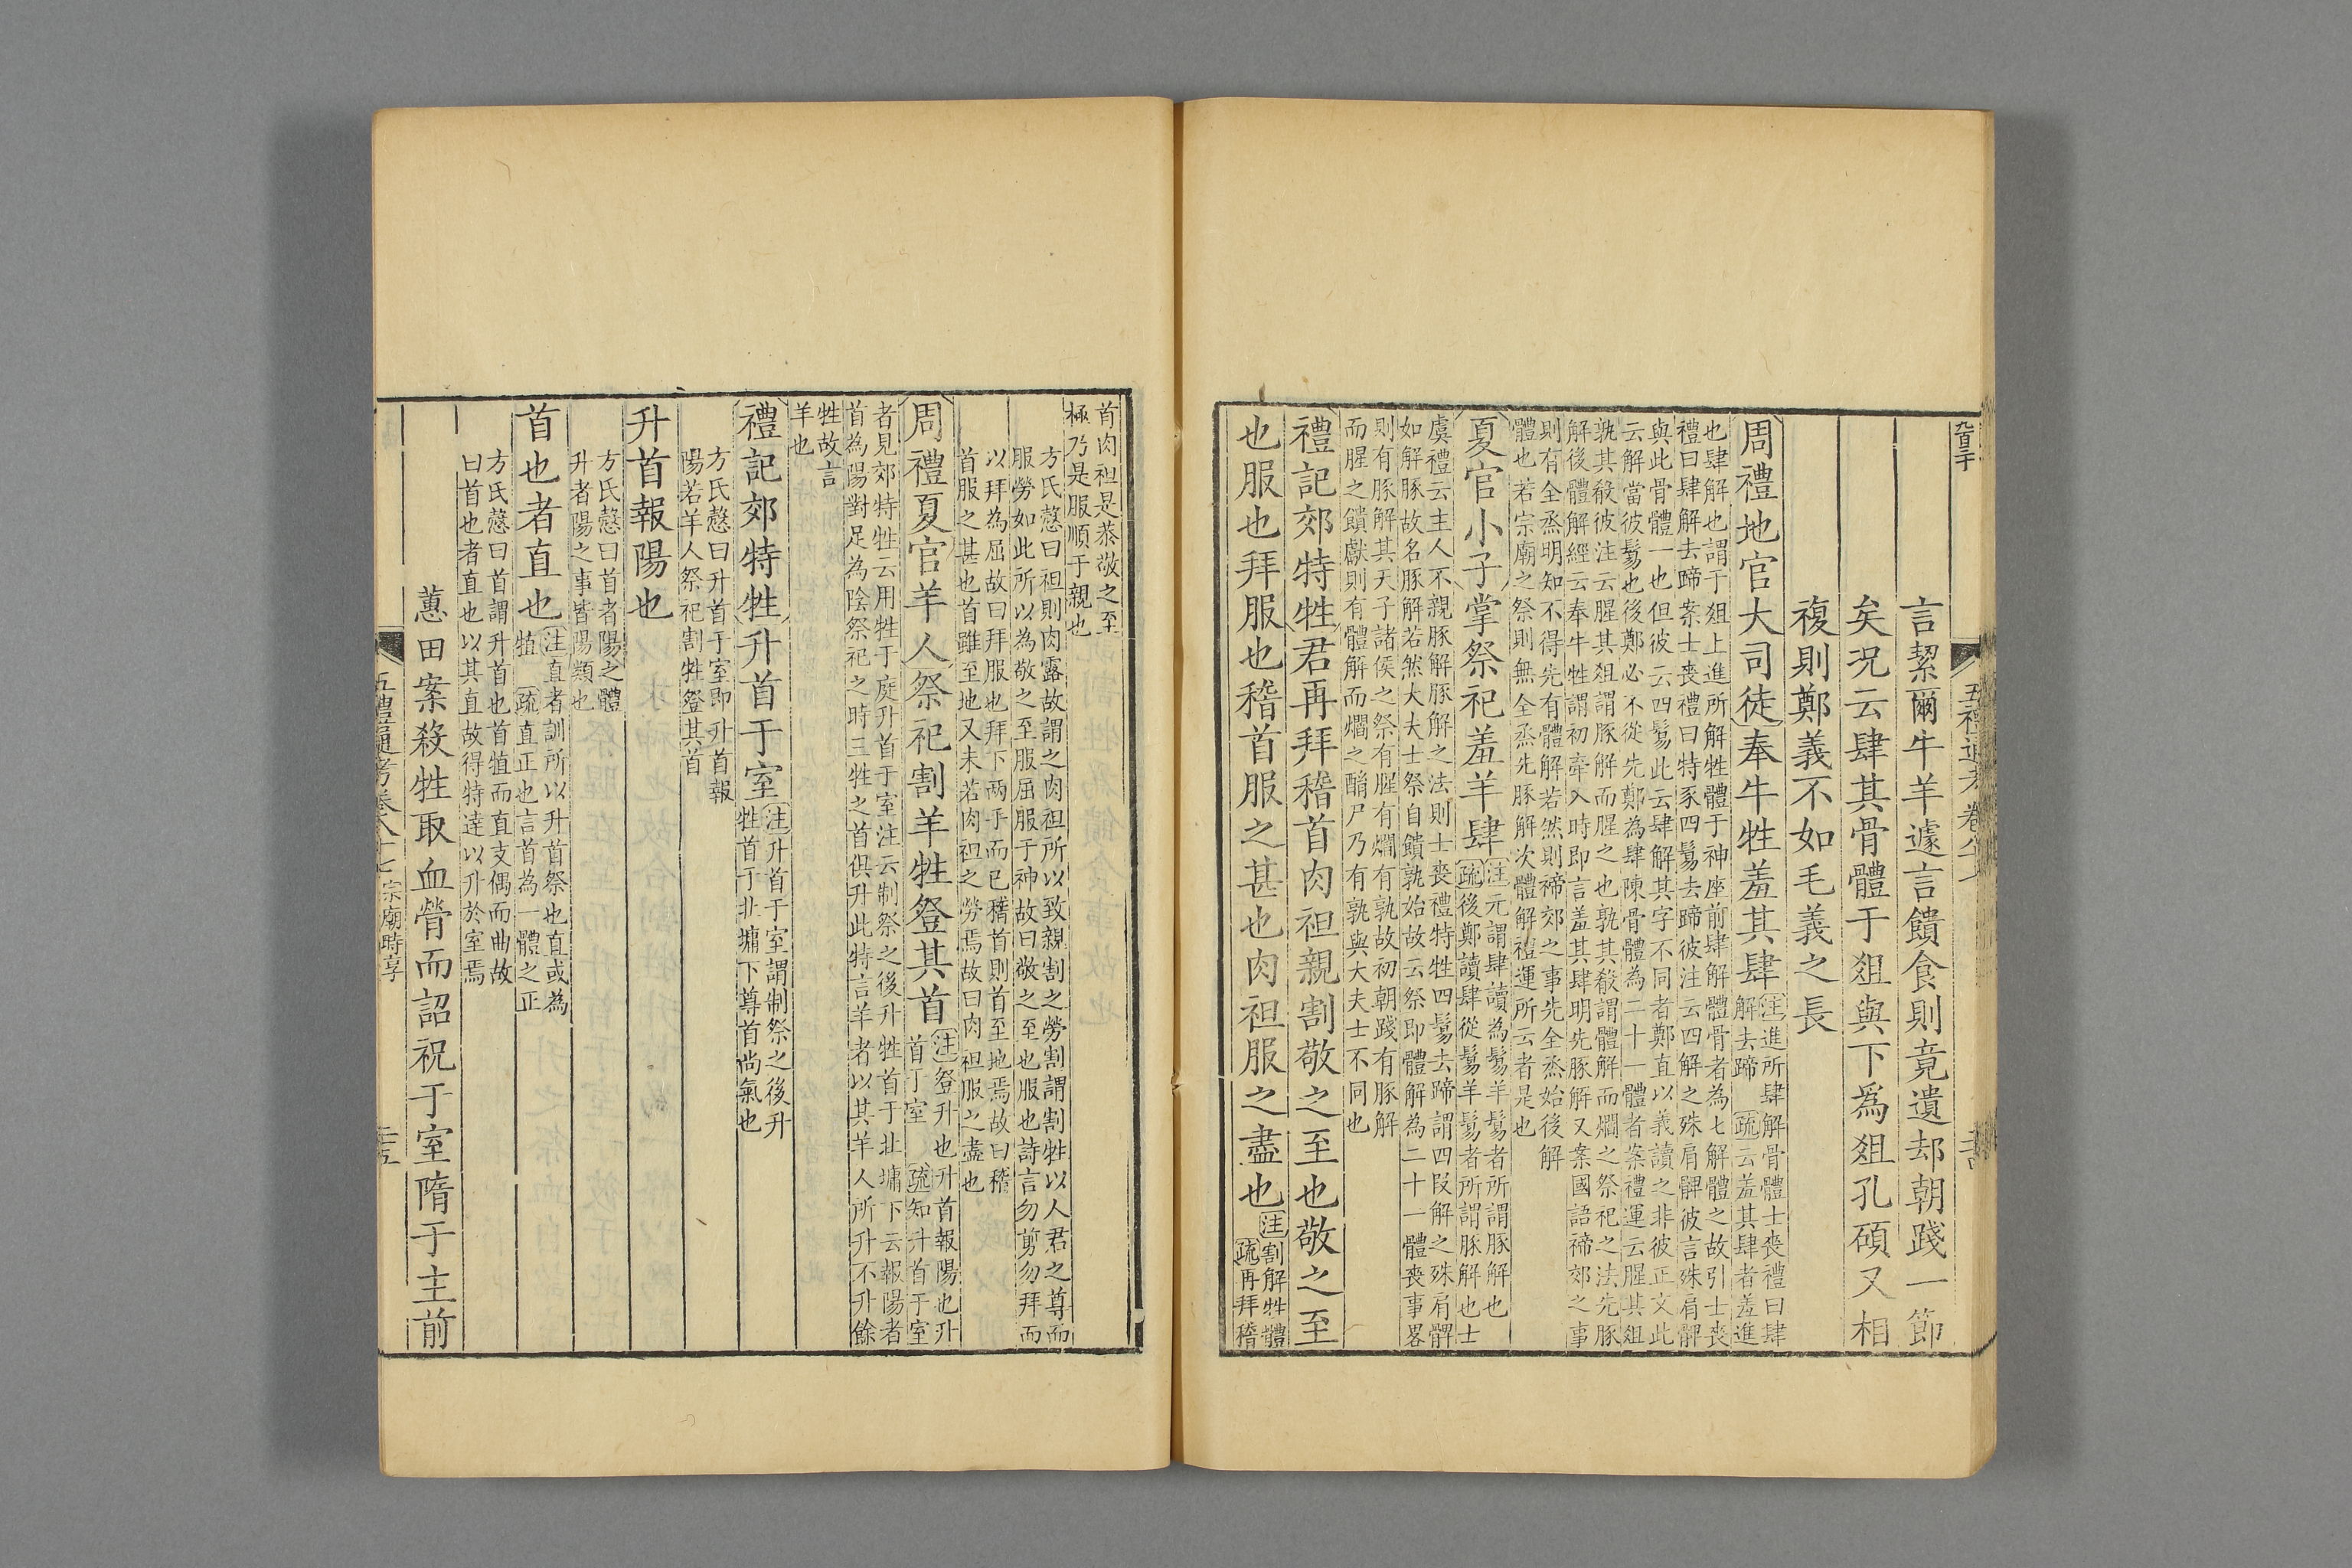 言絜爾牛羊遽言饋食則竟遺却朝踐一節
矣况云肆其骨體于爼與下爲爼孔碩又相
複則鄭義不如毛義之長
周禮地官大司徒奉牛牲羞其肆
注進所肆解骨體士喪禮曰肆
解去蹄 疏云羞其肆者羞進
也肆解也謂于爼上進所解牲體于神座前肆解體骨者為七解體之故引士喪
禮曰肆解去蹄案士喪禮曰特豕四鬄去蹄彼注云四解之殊肩髀彼言殊肩髀
與此骨體一也但彼云四鬄此云肆解其字不同者鄭直以義讀之非彼正文此
云解當彼鬄也後鄭必不從先鄭為肆陳骨體為二十一體者案禮運云腥其爼
孰其殽彼注云腥其爼謂豚解而腥之也孰其殽謂體解而爓之祭祀之法先豚
解後體解經云奉牛牲謂初牽入時即言羞其肆明先豚解又案國語禘郊之事
則有全烝明知不得先有體解若然則禘郊之事先全烝始後解
體也若宗廟之祭則無全烝先豚解次體解禮運所云者是也
夏官小子掌祭祀羞羊肆
注元謂肆讀為鬄羊鬄者所謂豚解也
疏後鄭讀肆從鬄羊鬄者所謂豚解也士
虞禮云主人不親豚解豚解之法則士喪禮特牲四鬄去蹄謂四段解之殊肩髀
如解豚故名豚解若然大夫士祭自饋孰始故云祭即體解為二十一體喪事畧
則有豚解其天子諸侯之祭有腥有爓有孰故初朝踐有豚解
而腥之饋獻則有體解而爓之酳尸乃有孰與大夫士不同也
禮記郊特牲君再拜稽首肉袒親割敬之至也敬之至
也服也拜服也稽首服之甚也肉袒服之盡也
注割解牲體
疏再拜稽
首肉袒是恭敬之至
極乃是服順于親也
方氏慤曰袒則肉露故謂之肉袒所以致親割之勞割謂割牲以人君之尊而
服勞如此所以為敬之至服屈服于神故曰敬之至也服也詩言勿剪勿拜而
以拜為屈故曰拜服也拜下两手而已稽首則首至地焉故曰稽
首服之甚也首雖至地又未若肉袒之勞焉故曰肉袒服之盡也
周禮夏官羊人祭祀割羊牲登其首
注登升也升首報陽也升
首于室 疏知升首于室
者見郊特牲云用牲于庭升首于室注云制祭之後升牲首于北墉下云報陽者
首為陽對足為陰祭祀之時三牲之首俱升此特言羊者以其羊人所升不升餘
牲故言
羊也
禮記郊特牲升首于室
注升首于室謂制祭之後升
牲首于北墉下尊首尚氣也
方氏慤曰升首于室即升首報
陽若羊人祭祀割牲登其首
升首報陽也
方氏慤曰首者陽之體
升者陽之事皆陽類也
首也者直也
注直者訓所以升首祭也直或為
犆 疏直正也言首為一體之正
方氏慤曰首謂升首也首犆而直支偶而曲故
曰首也者直也以其直故得特達以升於室焉
蕙田案殺牲取血膋而詔祝于室隋于主前
宗廟時享